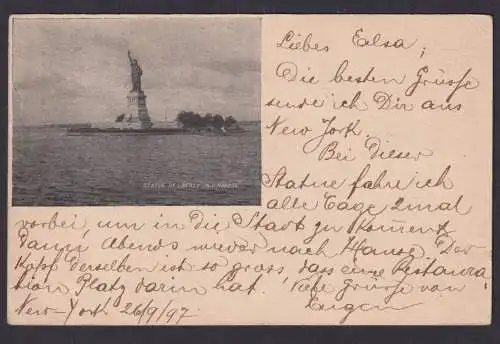 Liebes Ealsa,
Die besten Grüsse
sende ich Dir aus
New York.
Bei Dieser
STATUE OF LIBERTY N.Y. HARBOR
Statue fahre ich
alle Tage 2mal
vorbei, um in die Stadt zu kommen &
dann Abends wieder nach Hause. Der
Kopf derselben ist so gross, dass eine Restaura
tion Platz darin hat. Viele Grüsse von
New-York 26/9/97. Eugen